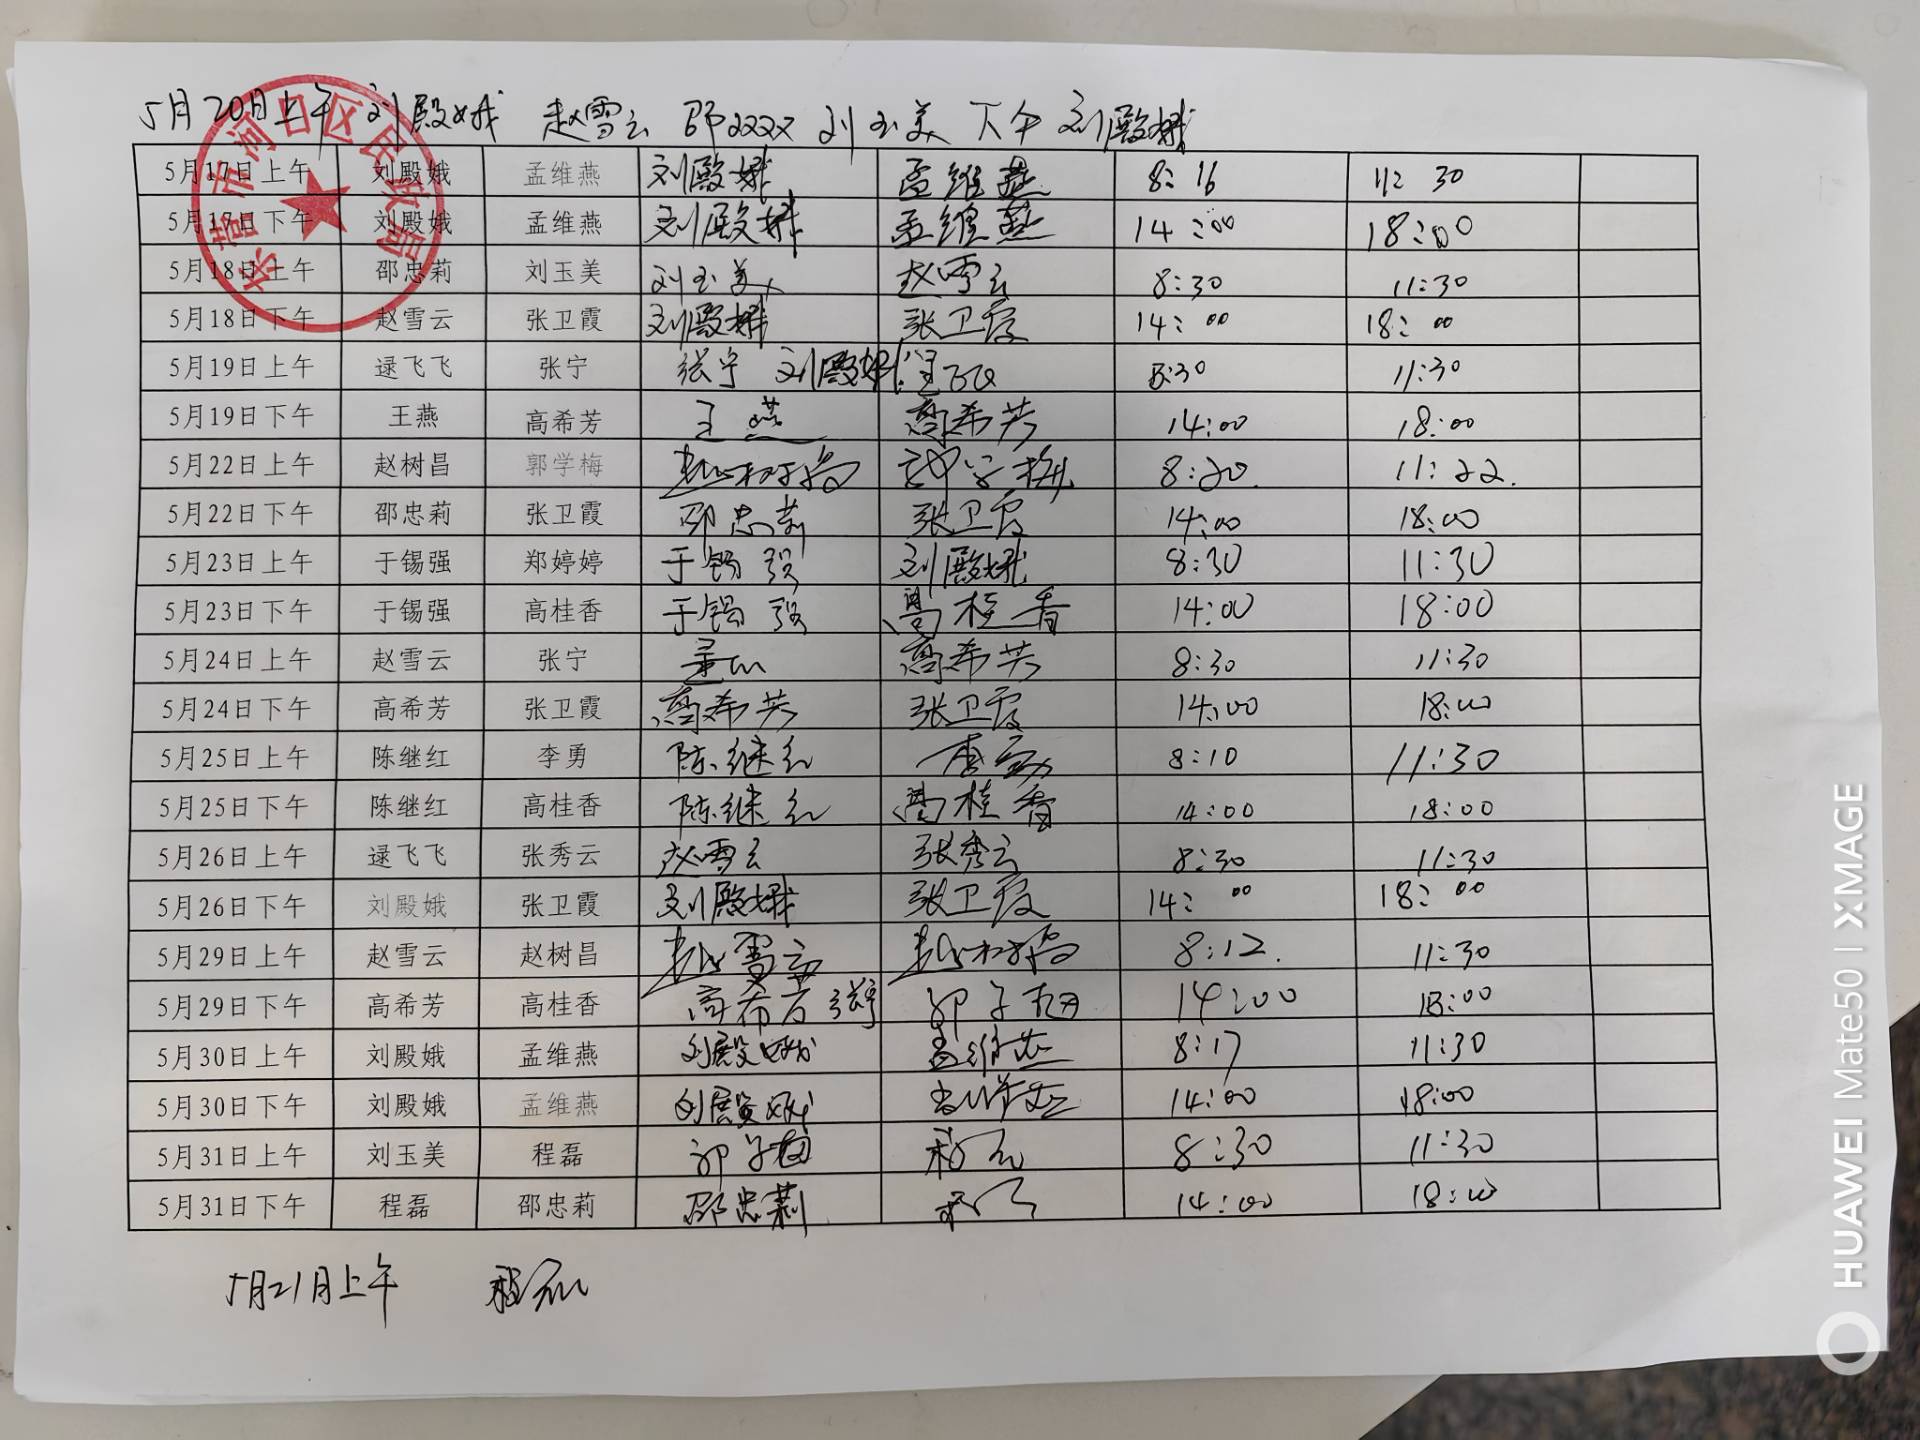 5月20日上午 刘殿娥 赵雪云 邵 刘玉美 下午 刘殿娥
东营市河口区民政局
5月17日上午 刘殿娥 孟维燕 刘殿娥 孟维燕 8:16 11:30
5月17日下午 刘殿娥 孟维燕 刘殿娥 孟维燕 14:00 18:00
5月18日上午 邵忠莉 刘玉美 刘玉美 赵雪云 8:30 11:30
5月18日下午 赵雪云 张卫霞 刘殿娥 张卫霞 14:00 18:00
5月19日上午 逯飞飞 张宁 张宁 刘殿娥 8:30 11:30
5月19日下午 王燕 高希芳 王燕 高希芳 14:00 18:00
5月22日上午 赵树昌 郭学梅 赵树昌 郭学梅 8:20. 11:22.
5月22日下午 邵忠莉 张卫霞 邵忠莉 张卫霞 14:00 18:00
5月23日上午 于锡强 郑婷婷 于锡强 刘殿娥 8:30 11:30
5月23日下午 于锡强 高桂香 于锡强 高桂香 14:00 18:00
5月24日上午 赵雪云 张宁 高希芳 8:30 11:30
5月24日下午 高希芳 张卫霞 高希芳 张卫霞 14:00 18:00
5月25日上午 陈继红 李勇 陈继红 李勇 8:10 11:30
5月25日下午 陈继红 高桂香 陈继红 高桂香 14:00 18:00
5月26日上午 逯飞飞 张秀云 赵雪云 张秀云 8:30 11:30
5月26日下午 刘殿娥 张卫霞 刘殿娥 张卫霞 14:00 18:00
5月29日上午 赵雪云 赵树昌 赵雪云 赵树昌 8:12. 11:30
5月29日下午 高希芳 高桂香 高希芳 张宁 郭学梅 14:00 18:00
5月30日上午 刘殿娥 孟维燕 刘殿娥 孟维燕 8:17 11:30
5月30日下午 刘殿娥 孟维燕 刘殿娥 孟维燕 14:00 18:00
5月31日上午 刘玉美 程磊 郭学梅 程磊 8:30 11:30
5月31日下午 程磊 邵忠莉 邵忠莉 程磊 14:00 18:00
5月21日上午 程磊
HUAWEI Mate50 | XMAGE